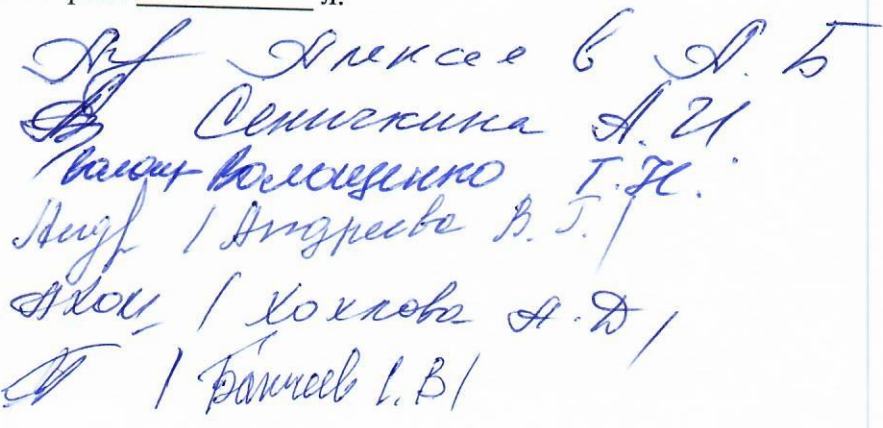 л.
Алексеев А. Б
Сеничкина А. И
Волощенко Т. Н.
Андр / Андреева В. Г. /
АХох / Хохлова А. Д /
/ Банчев С. В /